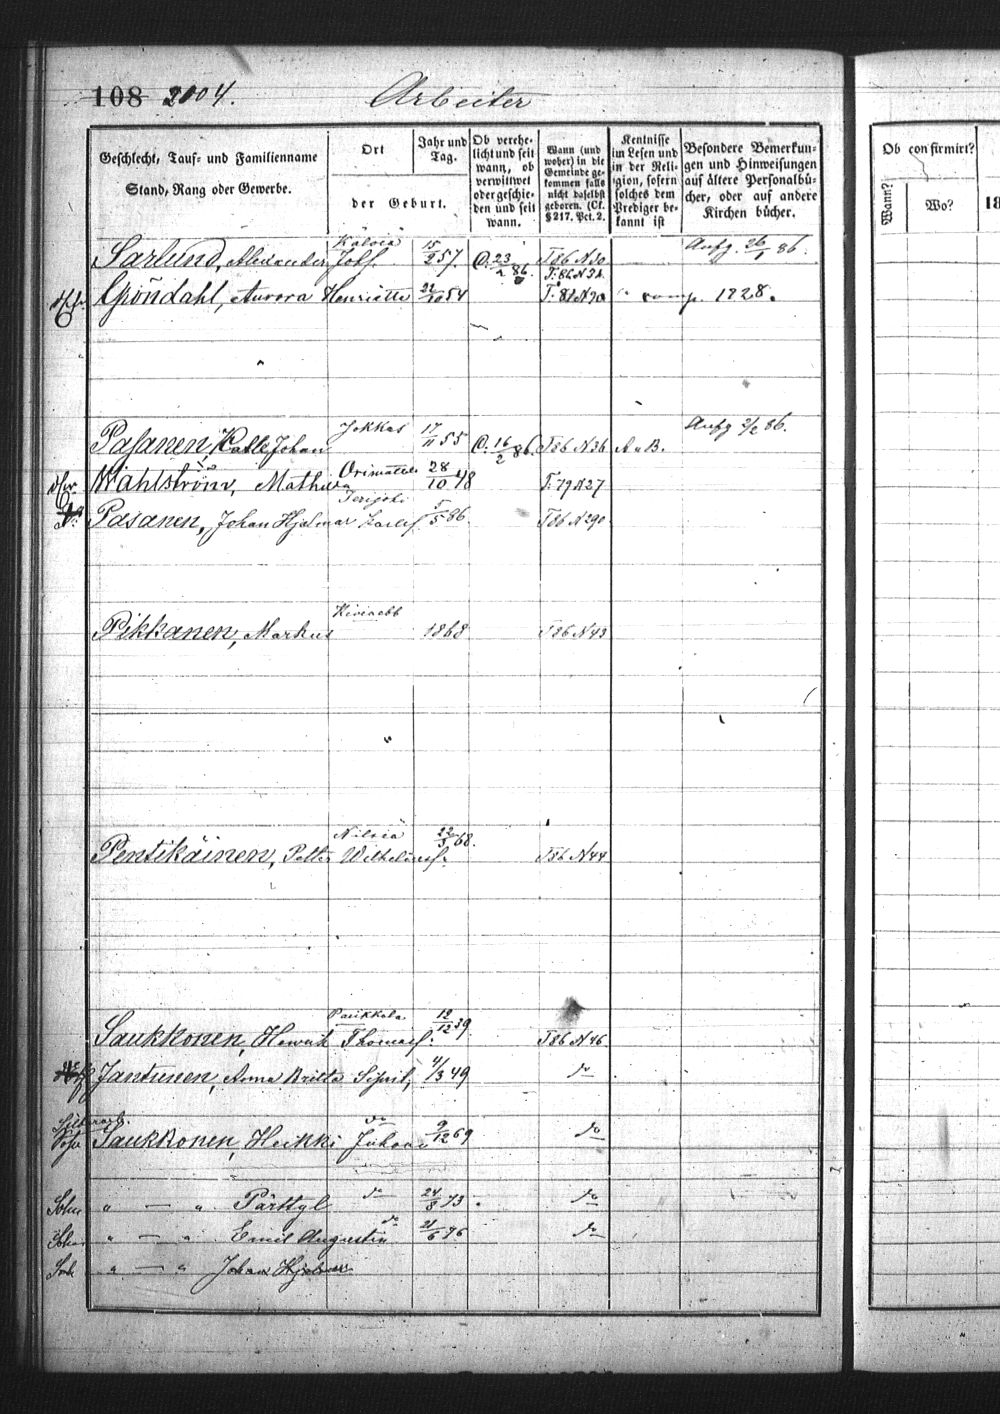 108 2004. Arbeiter
Geschlecht, Tauf- und Familienname
Stand, Rang oder Gewerbe.
Ort
Jahr und Tag.
der Geburt.
Ob verehe-
licht und seit
wann, ob
verwittwet
oder geschie-
den und seit
wann.
Wann (und
woher) in die
Gemeinde ge-
kommen falls
nicht daselbst
geboren. (Cf.
§ 217. Pct. 2.
Kentnisse
im Lesen und
in der Reli-
gion, sofern
solches dem
Prediger be-
kannt ist
Besondere Bemerkun-
gen und Hinweisungen
auf ältere Personalbü-
cher, oder auf andere
Kirchen bücher.
Ob confirmirt?
Wann?
Wo?
18
Kälviä
Sarlund, Alexander Johs. 15/2 57. 23/2 86. T86 N30 Aufg. 26/1 86.
Gröndahl, Aurora Henriette 22/10 54 T. 81 N90 comp. 1828.
Jokkas
Pasanen, Kalle Johan 17/11 55 16/2 86. T86 N36 A u B. Aufg 2/2 86.
Orimattila
Wahlström, Mathilda 28/10 48 T. 79 N27
Terijoki
Pasanen, Johan Hjalmar 5/5 86. T86 N290
Kivinebb
Pikkanen, Markus 1868 T86 N43
Nilsiä
Pentikäinen, Petter Wilhelmsf. 22/3 68. T86 N44
Parikkala
Saukkonen, Henrik Thomasf. 12/12 39. T86 N46
Jantunen, Anna Britta 4/3 49 do
Saukkonen, Heikki Juhana do 9/12 69 do
Sohn " — " Pärttyl do 24/8 73. do
Sohn " — " Emil Augustin do 21/6 76 do
Sohn " — " Johan Hjalmar